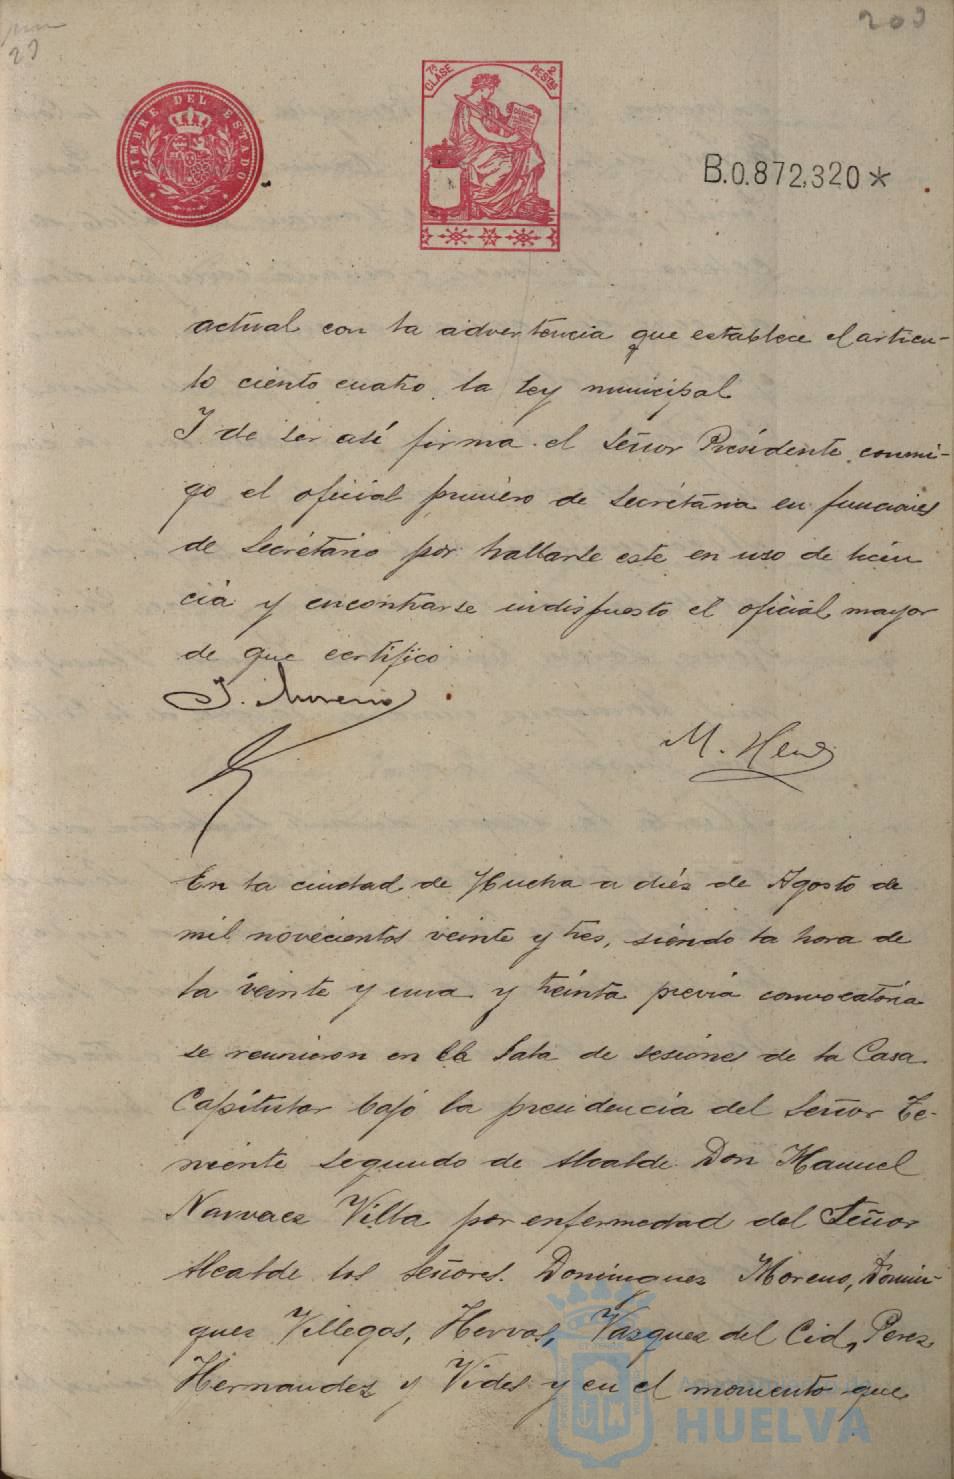 203
23
TIMBRE DEL ESTADO
7ª CLASE 2 PESTAS
B.0.872,320*
actual con la advertencia que establece el articu-
lo ciento cuatro la Ley municipal
Y de ser así firma el Señor Presidente conmi-
go el oficial primero de Secretaria en funciones
de Secretario por hallarse este en uso de licen
cia y encontrarse indispuesto el oficial mayor
de que certifico
J. Moreno
M. 
En la ciudad de Huelva a diés de Agosto de
mil novecientos veinte y tres, siendo la hora de
la veinte y una y treinta previa convocatoria
se reunieron en la Sala de sesiones de la Casa
Capitular bajo la presidencia del Señor Te-
niente segundo de Alcalde Don Manuel
Narvaez Villa por enfermedad del Señor
Alcalde los Señores. Dominguez Moreno, Domin-
guez Villegas, Hervas, Vazquez del Cid, Perez
Hernandez y Vides y en el momento que
Ayuntamiento de
HUELVA